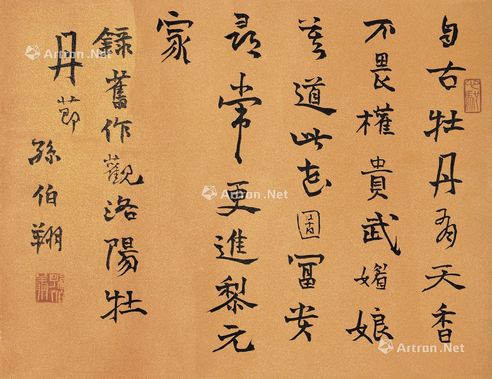 自古牡丹有天香
不畏權貴武媚娘
莫道此花富
尋常更進黎元
家
錄舊作觀洛陽牡
丹節 孫伯翔
Artron.Net
Artron.Net
Artron.Net